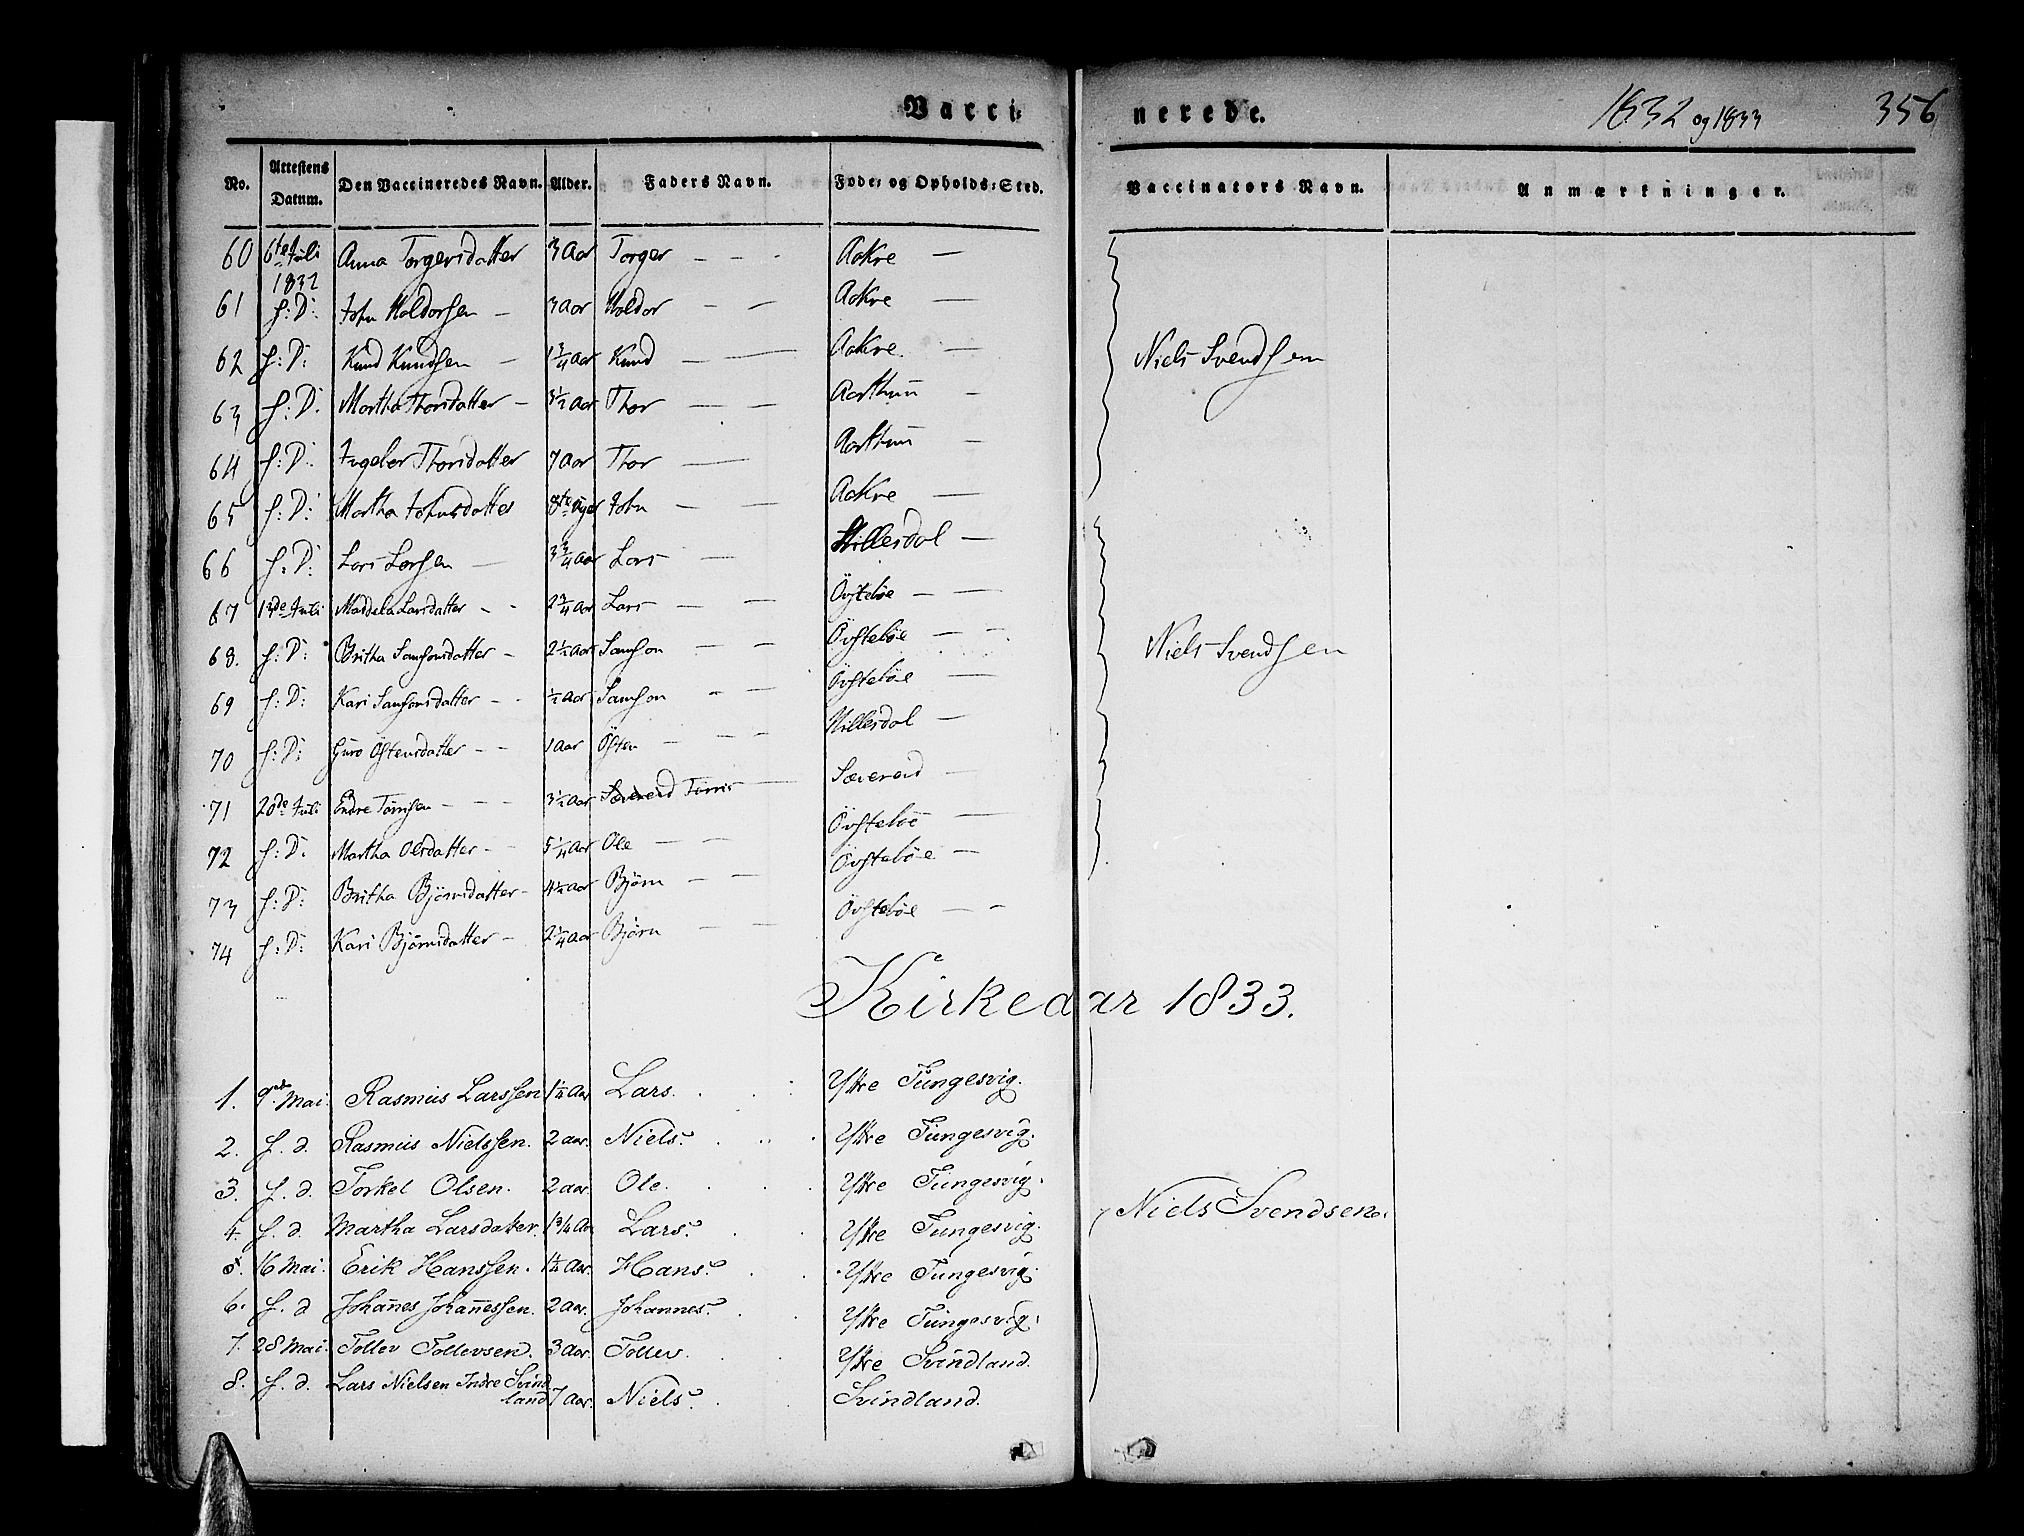 Vacci:
nerede.
1832 og 1833
356
No. Attestens Datum. Den Vaccineredes Navn. Alder. Faders Navn. Føde- og Opholds-Sted. Vaccinators Navn. Anmærkninger.
60 6te Juli 1832 Anna Torgersdatter 3 Aar Torger - - - Aakre -
61 s: D: John Haldorsen - 3 Aar Haldor - - Aakre -
62 s: D: Knud Knudsen - 1 3/4 Aar Knud - - Aakre - Niels Svendsen
63 s: D. Martha Thorsdatter - 3 1/2 Aar Thor - - Aarthun -
64 s: D: Ingebor Thorsdatter 7 Aar Thor - Aarthun -
65 s: D: Martha Johnsdatter 8te Uger John - - Aakre -
66 s: D: Lars Larsen - 3 3/4 Aar Lars - Hillesdal -
67 13de Juli Maddela Larsdatter - - 2 3/4 Aar Lars - - Øvstebøe - -
68. s: D: Britha Samsonsdatter - 2 1/2 Aar Samson - - Øvstebøe - - Niels Svendsen
69 s: D: Kari Samsonsdatter - - 1/2 Aar Samson - - Øvstebøe -
70 s: D: Guro Østensdatter - - 1 Aar Østen - - - Hillesdal -
71 20de Juli Endre Tørrisen - - - 3 1/2 Aar Sæverend Tørris - Sæverend -
72 s: D. Martha Olsdatter - - 5 1/4 Aar Ole - - Øvstebøe -
73 s: D: Britha Bjørnsdatter - 4 1/2 Aar Bjørn - - Øvstebøe -
74 s: D: Kari Bjørnsdatter - 2 1/4 Aar Bjørn - - Øvstebøe - -
Kirkeaar 1833.
1. 9de Mai. Rasmus Larssen 1 1/4 Aar Lars. Ytre Tungesvig.
2. s. d. Rasmus Nielssen. 2 aar. Niels. Ytre Tungesvig.
3. s. d. Torkel Olsen. 2 aar. Ole. Ytre Tungesvig. Niels Svendsen.
4. s. d Martha Larsdatter. 1 3/4 Aar Lars. Ytre Tungesvig.
5. 16 Mai. Erik Hanssen. 1 1/4 Aar. Hans. Ytre Tungesvig.
6. s. d Johannes Johannessen. 2 aar. Johannes. Ytre Tungesvig.
7. 28 Mai. Tollev Tollevsen. 3 Aar. Tollev. Ytre Svindland.
8. s. d. Lars Nielsen Indre Svind
land 7 Aar. Niels. Svindland.